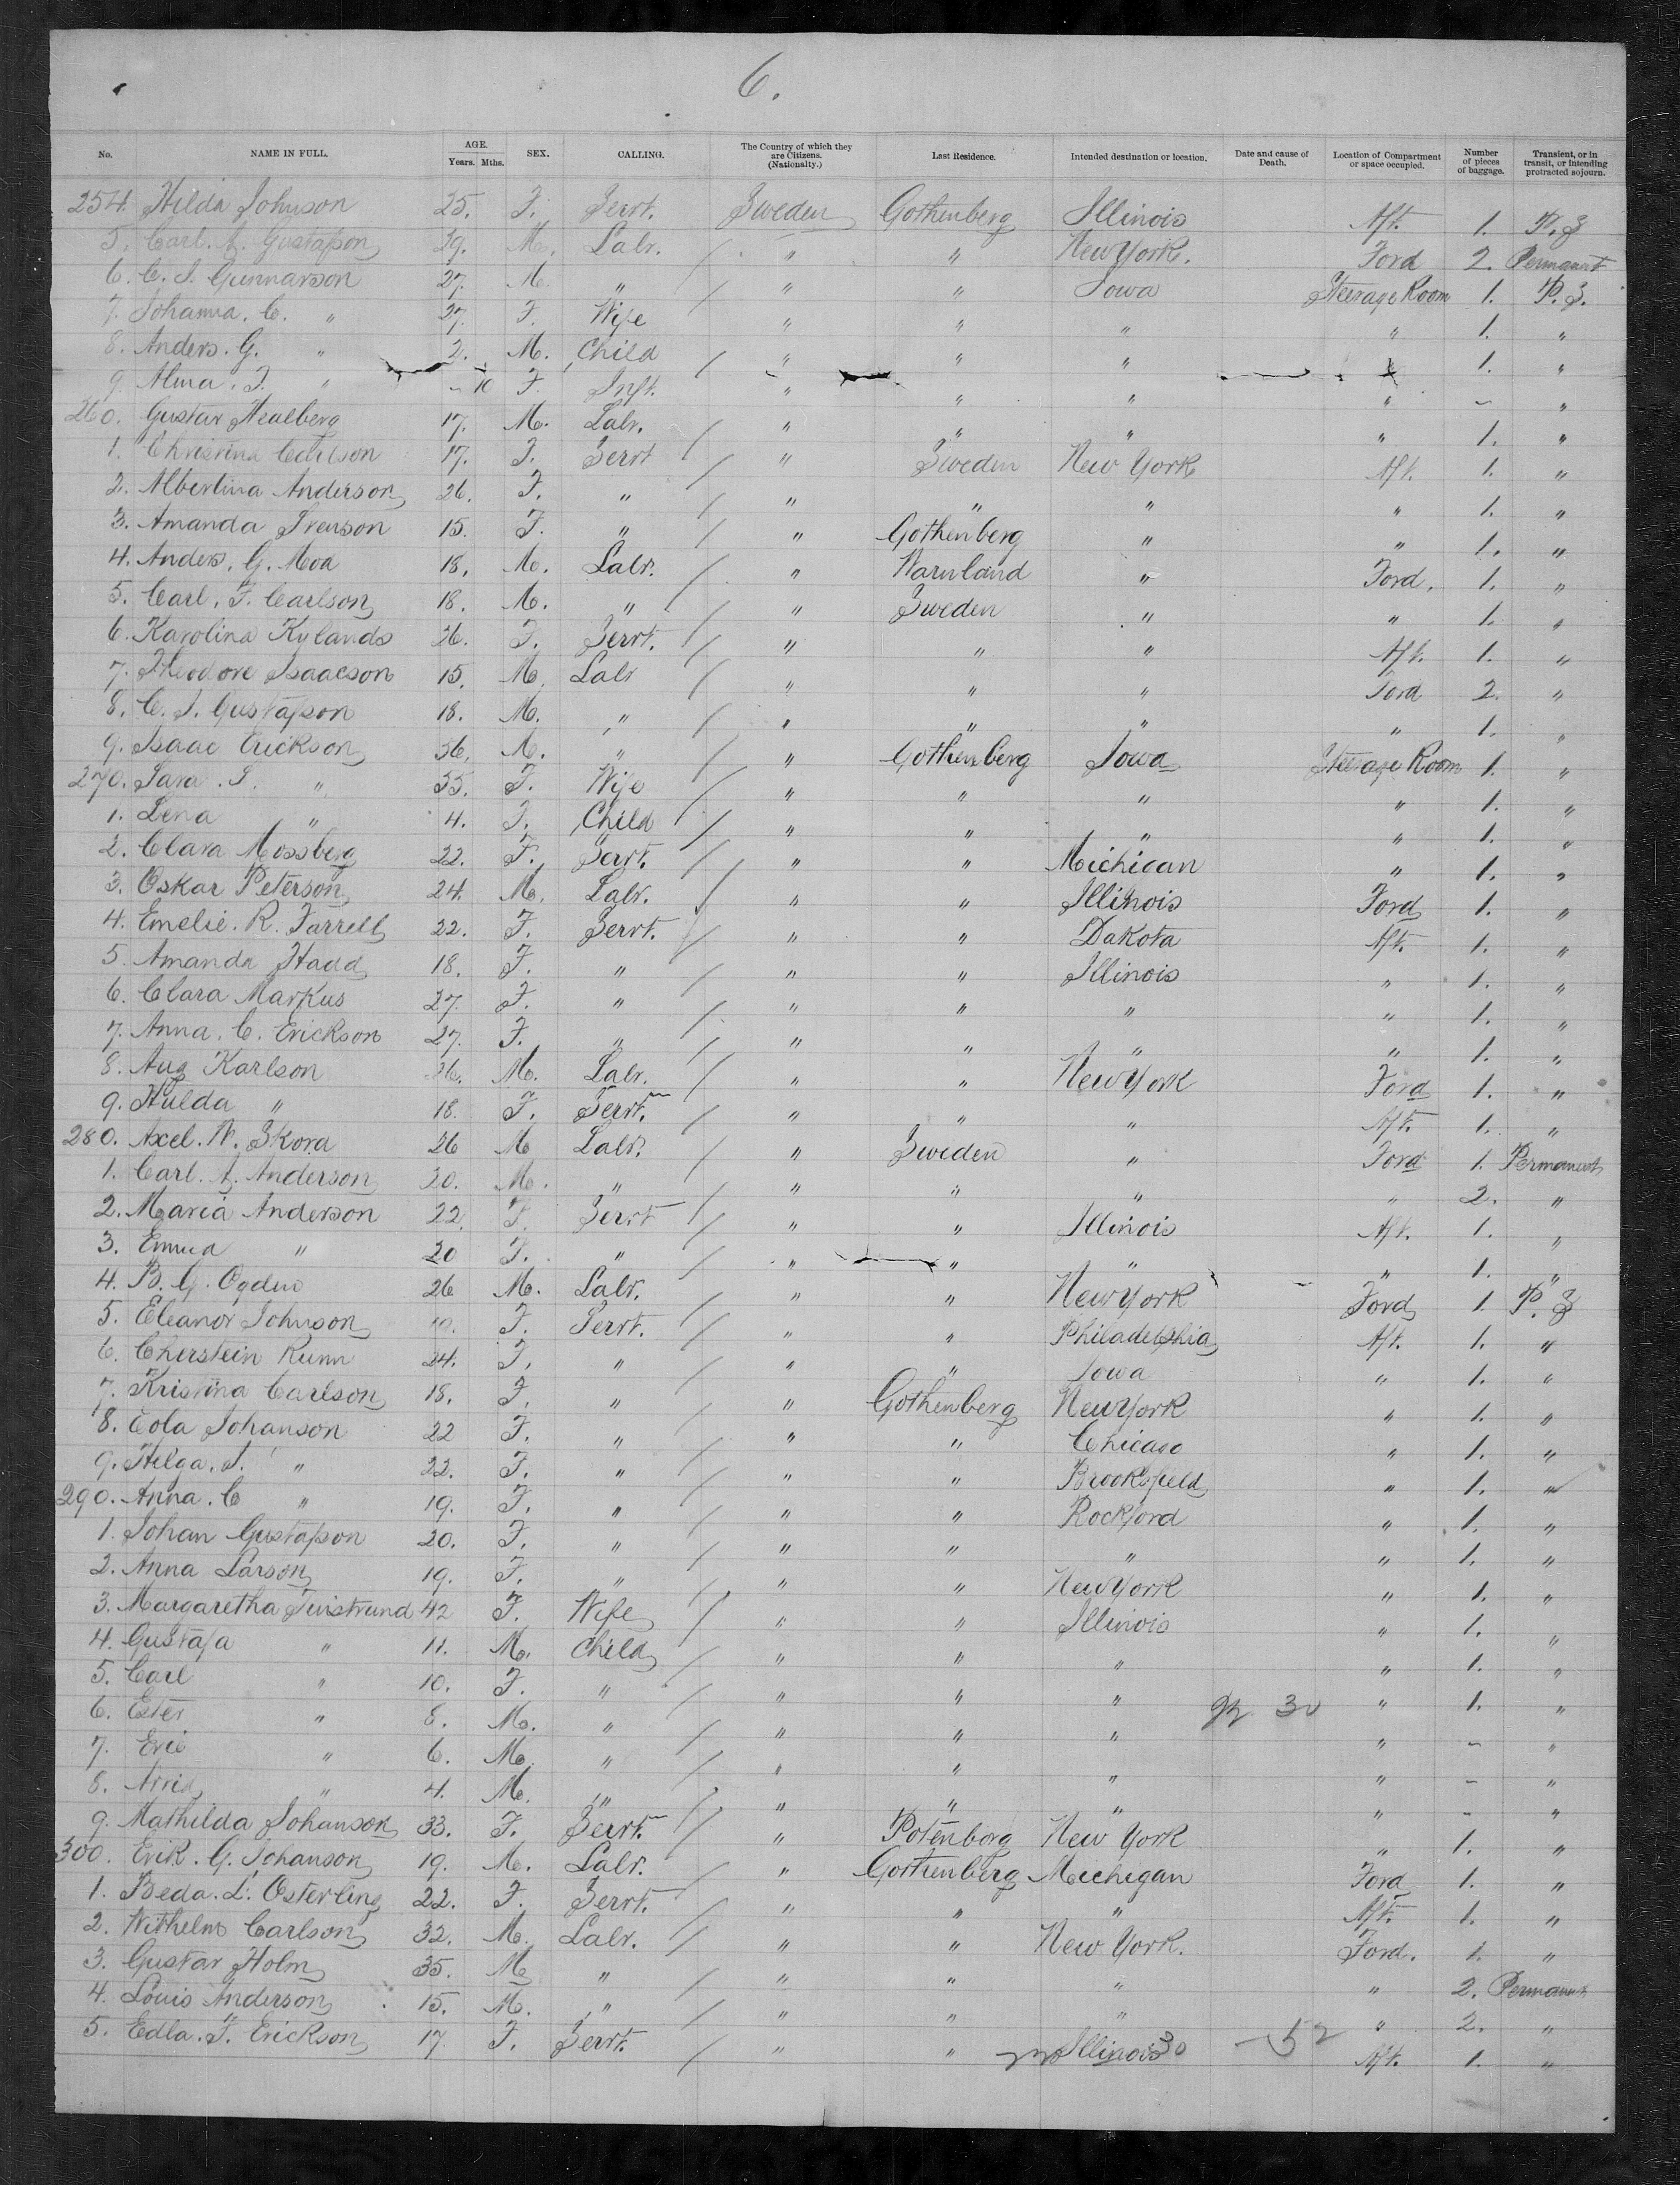 6.
No. NAME IN FULL. AGE. Years. Mths. SEX. CALLING. The Country of which they are Citizens. (Nationality.) Last Residence. Intended destination or location. Date and cause of Death. Location of Compartment or space occupied. Number of pieces of baggage. Transient, or in transit, or intending protracted sojourn.
254. Hilda Johnson 25. F. Servt. Sweden Gothenberg Illinois Aft. 1. P. S
5. Carl. A. Gustafson 29. M. Labr. / " " New York. Ford 2. Permanent
6. C. J. Gunnarson 27. M. " / " " Iowa Steerage Room 1. P. S.
7. Johanna. C. " 27. F. Wife " " " " 1. "
8. Anders. G. " 2. M. Child / " " " " 1. "
9. Alma. J. " - 10 F. Inft. " " " " - "
260. Gustav 17. M. Labr. / " " " " 1. "
1. Christina Carlson 17. F. Servt / " Sweden New York Aft. 1. "
2. Albertina Anderson 26. F. " / " " " " 1. "
3. Amanda Svenson 15. F. " / " Gothenberg " " 1. "
4. Anders. G. Moa 18. M. Labr. / " Warnland " Ford. 1. "
5. Carl. F. Carlson 18. M. " / " Sweden " " 1. "
6. Karolina Kylands 26. F. Servt. / " " " Aft. 1. "
7. Theodore Isaacson 15. M. Labr / " " " Ford 2. "
8. C. J. Gustafson 18. M. " / " " " " 1. "
9. Isaac Erickson 36. M. " / " Gothenberg Iowa Steerage Room 1. "
270. Sara. S. " 35. F. Wife / " " " " 1. "
1. Lena " 4. F. Child / " " " " 1. "
2. Clara Mossberg 22. F. Servt. / " " Michican " 1. "
3. Oskar Peterson 24. M. Labr. / " " Illinois Ford 1. "
4. Emelie. R. Farrell 22. F. Servt. / " " Dakota Aft. 1. "
5. Amanda Hadd 18. F. " / " " Illinois " 1. "
6. Clara Markus 27. F. " / " " " " 1. "
7. Anna. C. Erickson 27. F. " / " " " " 1. "
8. Aug Karlson 26. M. Labr. / " " New York Ford 1. "
9. Hulda " 18. F. Servt. / " " " Aft. 1. "
280. Axel. W. Skora 26 M Labr. / " Sweden " Ford 1. Permanent
1. Carl. A. Anderson 20. M. " / " " " " 2. "
2. Maria Anderson 22. F. Servt / " " Illinois Aft. 1. "
3. Emma " 20 F. " / " " " " 1. "
4. B. G. Ogden 26 M. Labr. / " " New York Ford 1. P. S
5. Eleanor Johnson F. Servt. / " " Philadelphia Aft. 1. "
6. Cherstein Runn 24. F. " / " " Iowa " 1. "
7. Kristina Carlson 18. F. " / " Gothenberg New York " 1. "
8. Eola Johanson 22 F. " / " " Chicago " 1. "
9. Helga. S. " 22. F. " / " " Brooksfield " 1. "
290. Anna. C " 19. F. " / " " Rockford " 1. "
1. Johan Gustafson 20. F. " / " " " " 1. "
2. Anna Larson 19. F. " / " " New York " 1. "
3. Margaretha 42 F. Wife / " " Illinois " 1. "
4. Gustafa " 11. M. Child / " " " " 1. "
5. Carl " 10. F. " / " " " 30 " 1. "
6. Ester " 8. M. " / " " " " - "
7. Eric " 6. M. " / " " " " - "
8. Arvid " 4. M. " / " " " " - "
9. Mathilda Johanson 33. F. Servt. / " Potenborg New York " 1. "
300. Erik. G. Johanson 19. M. Labr. / " Gothenberg Michegan Ford 1. "
1. Beda. L. Osterling 22. F. Servt. / " " " Aft. 1. "
2. Wilhelm Carlson 32. M. Labr. / " " New York. Ford. 1. "
3. Gustav Holm 35. M " / " " " " 2. Permanent
4. Louis Anderson 15. M. " / " " " " 2. "
5. Edla. F. Erickson 17. F. Servt. / " " Illinois 30 - 52 Aft. 1. "